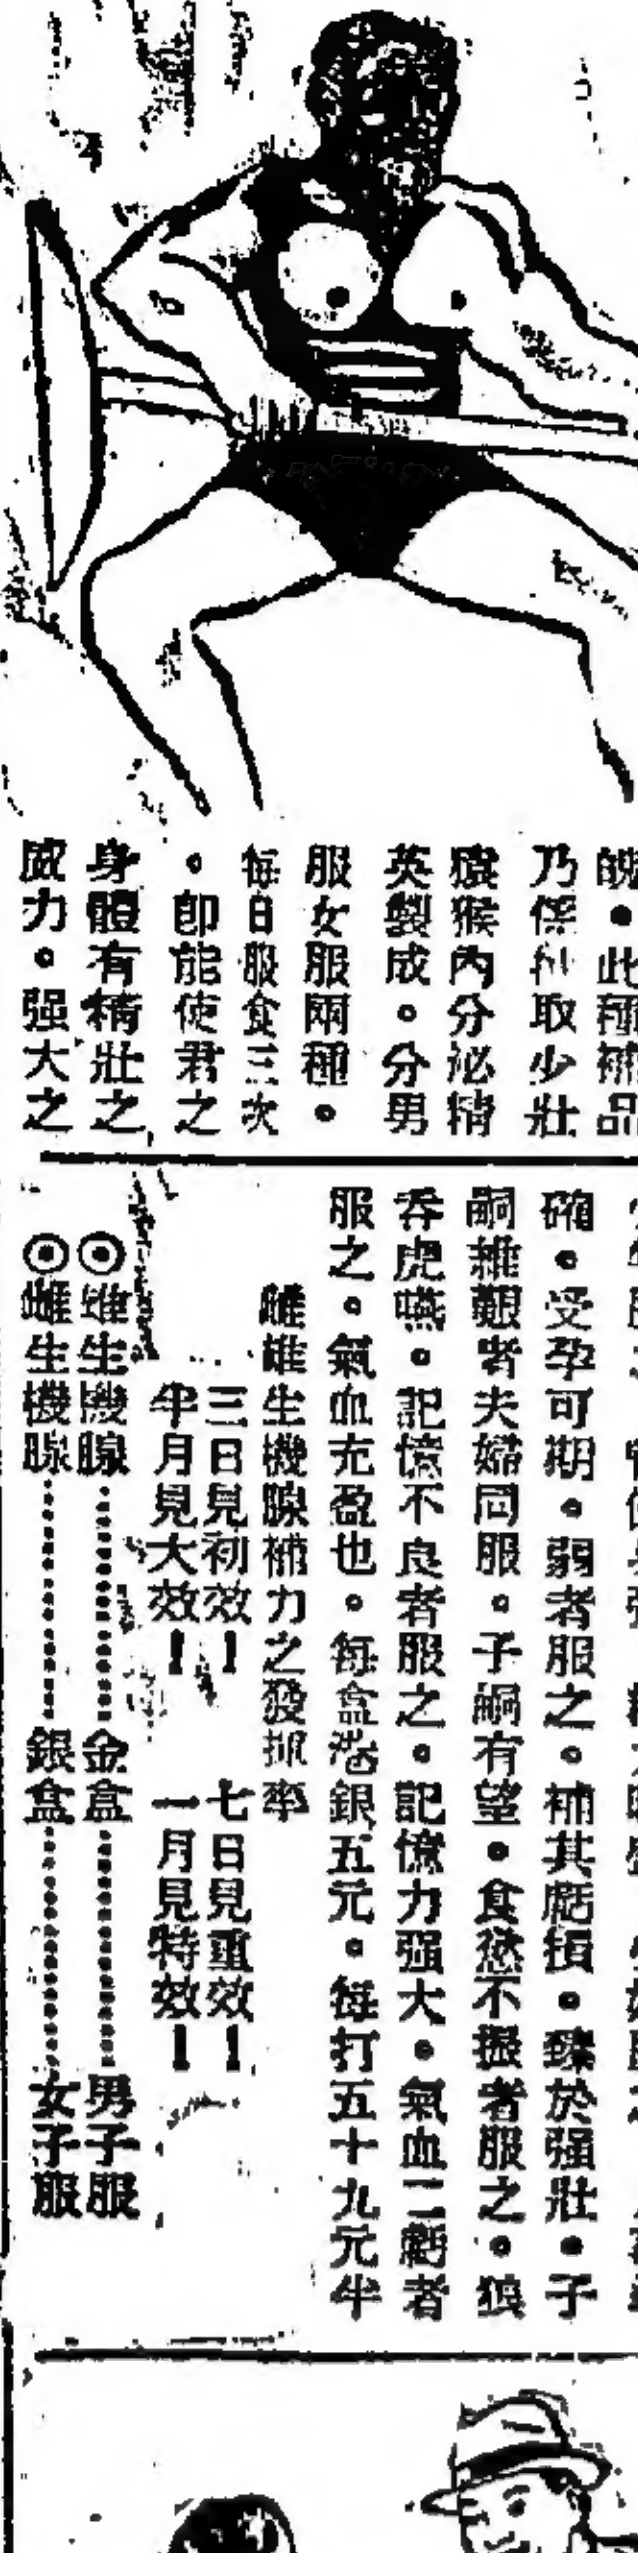 魄。此種補品
乃係採取少壯
猿猴內分泌精
英製成。分男
服女服兩種。
每日服食三次
。即能使君之
身體有精壯之
威力。强大之
確。受孕可期。弱者服之。補其虧損。臻於强壯。子
嗣維艱者夫婦同服。子嗣有望。食慾不振者服之。狼
吞虎嚥。記憶不良者服之。記憶力强大。氣血二虧者
服之。氣血充盈也。每盒港銀五元。每打五十九元半
雌雄生機腺補力之發揮率
三日見初效！ 七日見重效！
半月見大效！ 一月見特效！
◉雄生機腺………金盒………男子服
◉雌生機腺………銀盒………女子服